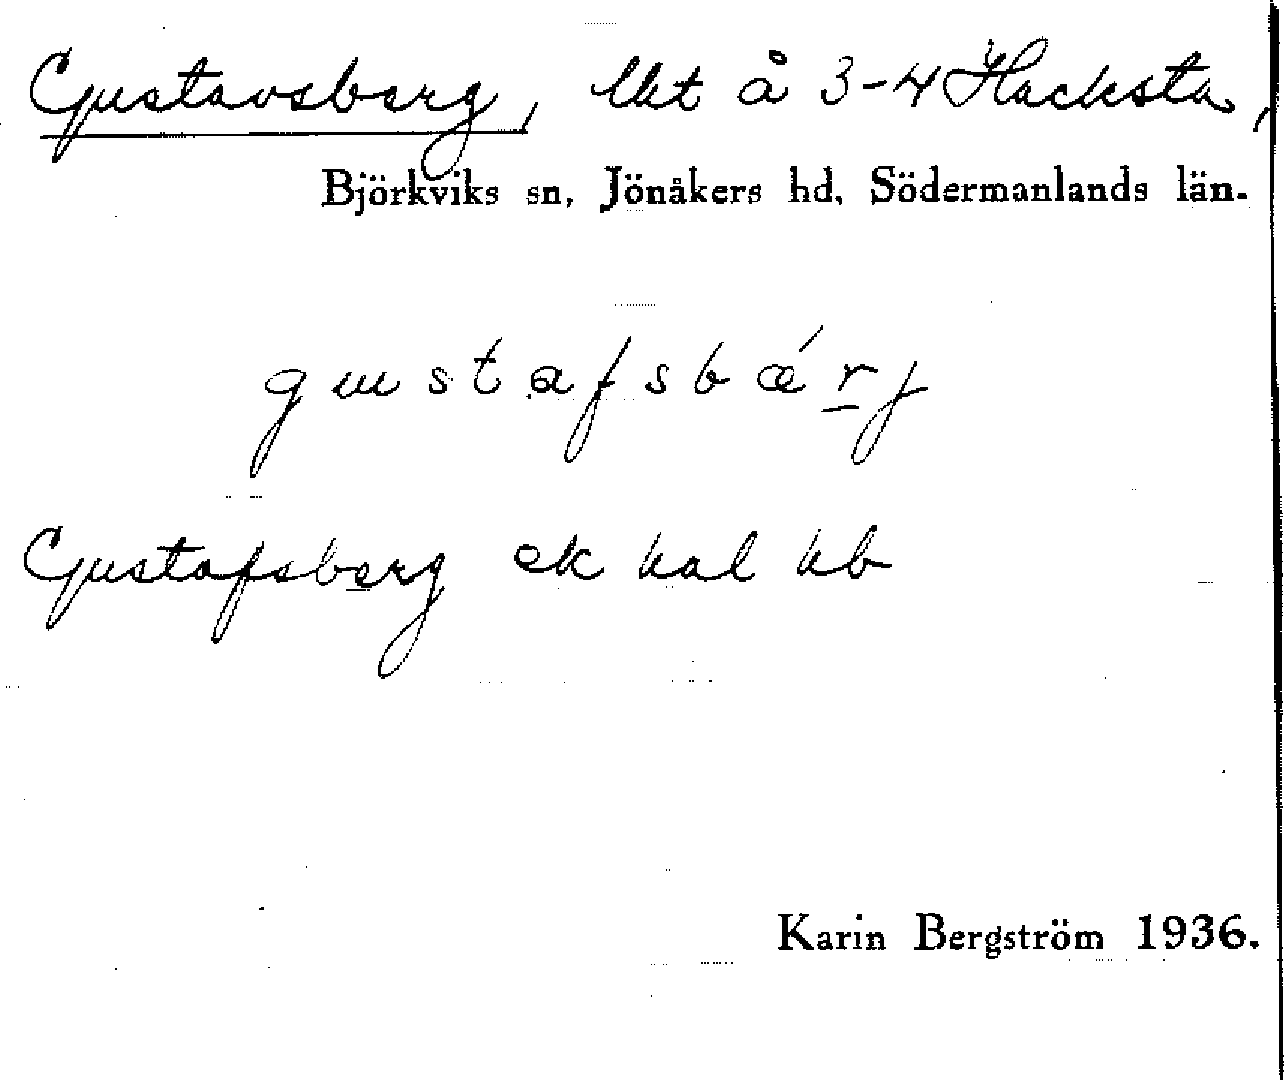 Gustavsberg, lht å 3-4 Hacksta,
Björkviks sn, Jönåkers hd, Södermanlands län.
gustafsbǽrj
Gustafsberg ek kal hb
Karin Bergström 1936.